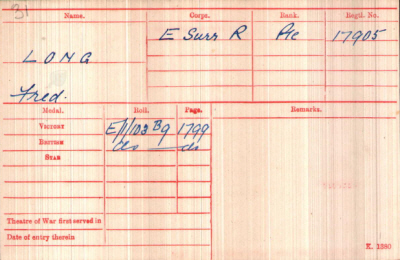 31
Name. Corps. Rank. Regtl. No.
LONG E Surr R Pte 17905
Fred.
Medal. Roll. Page. Remarks.
VICTORY E/1/103 B9 1799
BRITISH do do
STAR
Theatre of War first served in
Date of entry therein
K. 1380